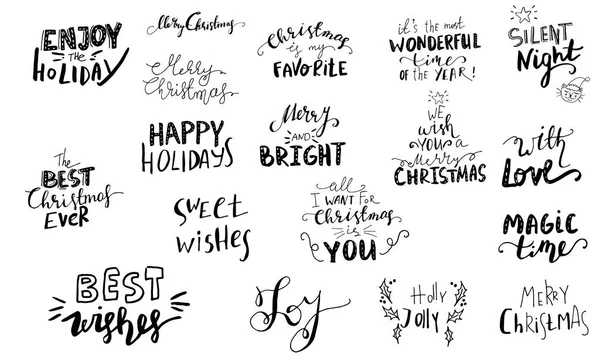 ENJOY
THE
HOLIDAY
Merry Christmas
Merry
Christmas
Christmas
is my
FAVORITE
it's the most
WONDERFUL
time
OF THE YEAR!
SILENT
Night
HAPPY
HOLIDAYS
Merry
AND
BRIGHT
WE
wish
YOU a
Merry
CHRISTMAS
with
Love
The
BEST
Christmas
EVER
SWEET
wisHes
all
I WANT FOR
Christmas
is
YOU
MAGIC
time
BEST
wishes
Joy
Holly
Jolly
MERRY
CHRISTMAS